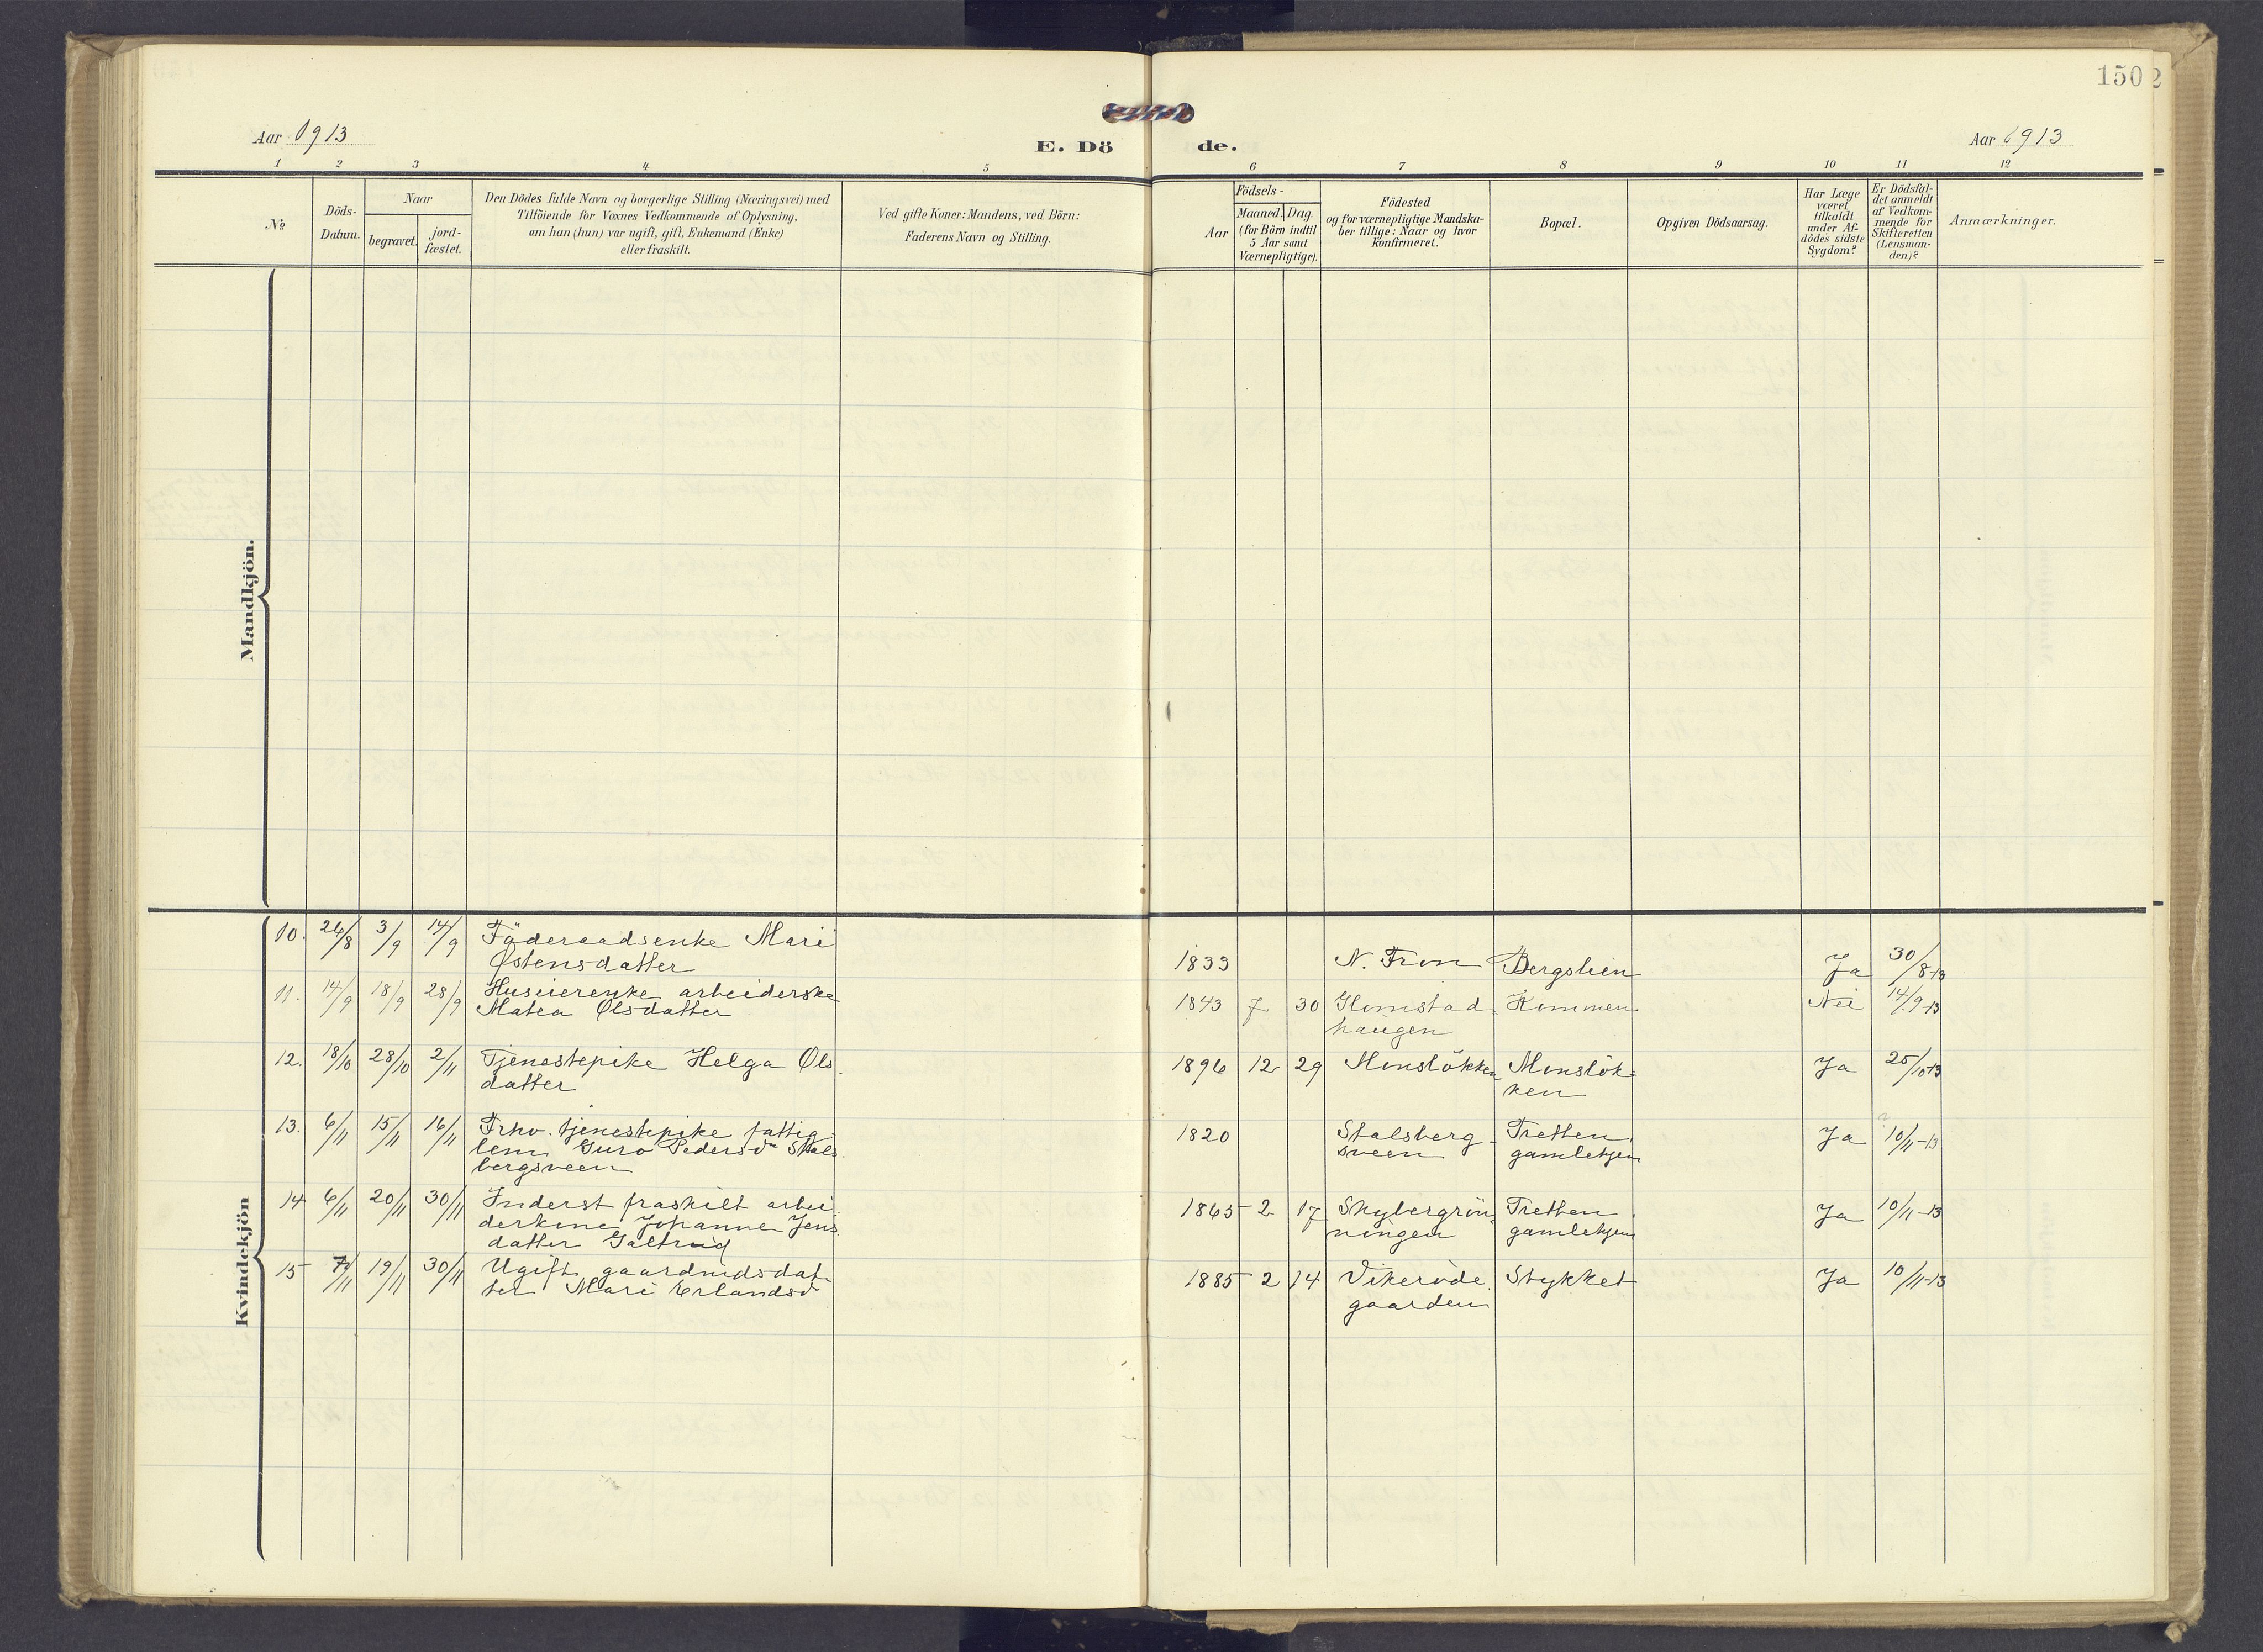 1502
Aar 1913
E. Dö de.
Aar 1913
1 2 3 4 5 6 7 8 9 10 11 12
No
Döds-
Datum.
Naar
begravet.
jord-
fæstet.
Den Dödes fulde Navn og borgerlige Stilling (Næringsvei) med
Tilföiende for Voxnes Vedkommende af Oplysning,
om han (hun) var ugift, gift, Enkemand (Enke)
eller fraskilt.
Ved gifte Koner: Mandens, ved Börn:
Faderens Navn og Stilling.
Födsels-
Aar
Maaned. Dag.
(for Börn indtil
5 Aar samt
Værnepligtige).
Födested
og for værnepligtige Mandska-
ber tillige: Naar og hvor
konfirmeret.
Bopæl.
Opgiven Dödsaarsag.
Har Læge
været
tilkaldt
under Af-
dödes sidste
Sygdom?
Er Dödsfal-
det anmeldt
af Vedkom-
mende for
Skifteretten
(Lensman-
den)?
Anmærkninger.
Mandkjön.
Kvindekjön
10. 26/8 3/9 14/9 Föderaadsenke Mari
Østensdatter 1833 N. Fron Bergslien Ja 30/8-13
11. 14/9 18/9 28/9 Husuierenke arbeiderske
Matea Olsdatter 1843 7 30 Homstad Kommen Nei 14/9-13
haugen
12. 18/10 28/10 2/11 Tjenestepike Helga Ols
datter 1896 12 29 Monslökken Monslök-
ken Ja 25/10-13
13. 6/11 15/11 16/11 Frhv. tjenestepike fattig-
lem Guro Pedersd Stals
bergsveen 1820 Stalsberg
sveen Tretten
gamlehjem Ja 10/11-13
14 6/11 20/11 30/11 Inderst fraskilt arbei
derkone Johanne Jens
datter Galtrud 1865 2 17 Skybergrön
ningen Tretten
gamlehjem Ja 10/11-13
15 7/11 19/11 30/11 Ugift gaardmdsdat
ter Mari Erlandsd 1885 2 14 Vikeröde
gaarden Stykket Ja 10/11-13